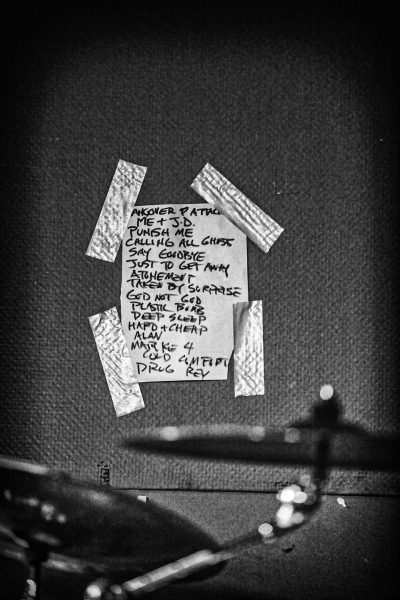 HANGOVER & ATTACK
ME + J.D.
PUNISH ME
CALLING ALL GHOSTS
SAY GOODBYE
JUST TO GET AWAY
ATONEMENT
TAKEN BY SURPRISE
GOD NOT GOD
PLASTIC BOMB
DEEP SLEEP
HARD + CHEAP
ALAN
COLD COMFORT
DRUG REV